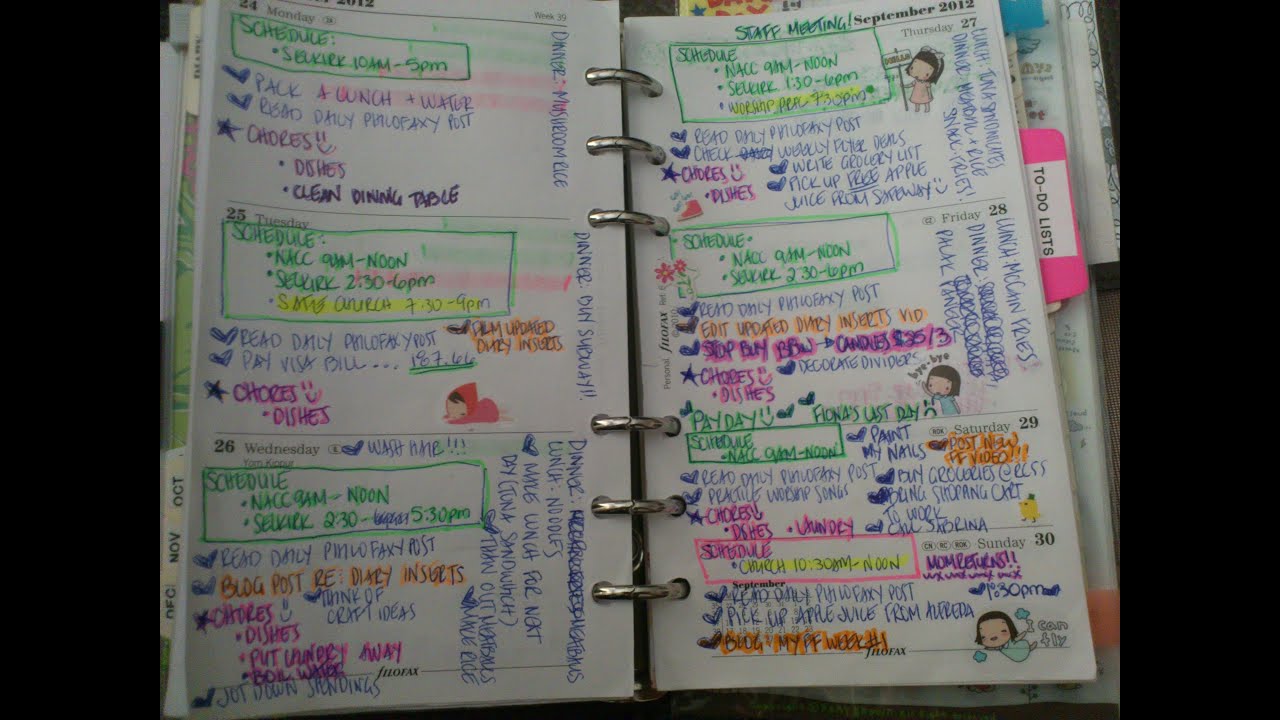 24 Monday
Week 39
SCHEDULE:
• SELKIRK 10AM-5pm
PACK A LUNCH + WATER
READ DAILY PHILOFAXY POST
CHORES
• DISHES
• CLEAN DINING TABLE
DINNER: MUSHROOM RICE
25 Tuesday
SCHEDULE:
• NACC 9AM-NOON
• SELKIRK 2:30-6pm
CHURCH 7:30-9pm
READ DAILY PHILOFAXY POST
FILM UPDATED
DIARY INSERTS
PAY VISA BILL... 187.66
CHORES
• DISHES
DINNER: BUY SUBWAY!!
26 Wednesday
WASH HAIR!!!
Yom Kippur
SCHEDULE
• NACC 9AM-NOON
• SELKIRK 2:30- 5:30pm
READ DAILY PHILOFAXY POST
BLOG POST RE: DIARY INSERTS
THINK OF
CRAFT IDEAS
CHORES
• DISHES
• PUT LAUNDRY AWAY
• BOIL WATER
JOT DOWN SPENDINGS
DINNER: MEATBALLS
LUNCH: NOODLES
MAKE LUNCH FOR NEXT
DAY (TUNA SANDWICH)
TAKE OUT MEATBALLS
MAKE RICE
filofax
September 2012
STAFF MEETING!
Thursday 27
SCHEDULE
• NACC 9AM-NOON
• SELKIRK 1:30-6pm
• WORSHIP PRAC 7:30pm
READ DAILY PHILOFAXY POST
CHECK WEEKLY FLYER DEALS
WRITE GROCERY LIST
CHORES
• DISHES
PICK UP FREE APPLE
JUICE FROM SAFEWAY
LUNCH: TUNA SANDWICHES
DINNER: MEATBALL + RICE
Friday 28
SCHEDULE
• NACC 9AM-NOON
• SELKIRK 2:30-6pm
READ DAILY PHILOFAXY POST
EDIT UPDATED DIARY INSERTS VID
STOP BUY BBW → CANDLES $35/3
CHORES
• DISHES
DECORATE DIVIDERS
bye.bye
PAYDAY
FIONA'S LAST DAY
LUNCH: MCCAIN FRIES
DINNER:
PALAK PANEER
Personal filofax
Saturday 29
SCHEDULE
• NACC 9AM-NOON
PAINT
MY NAILS
POST NEW
FF VIDEO!!!
READ DAILY PHILOFAXY POST
BUY GROCERIES @ RCSS
PRACTICE WORSHIP SONGS
BRING SHOPPING CART
TO WORK
CHORES
• DISHES • LAUNDRY
CALL SABRINA
Sunday 30
SCHEDULE
• CHURCH 10:30AM-NOON
MOM RETURNS!!
September
READ DAILY PHILOFAXY POST
PICK UP APPLE JUICE FROM ALFREDA
BLOG: MY FF WEEK!!
I can
fly
filofax
TO-DO LISTS
OCT
NOV
DEC